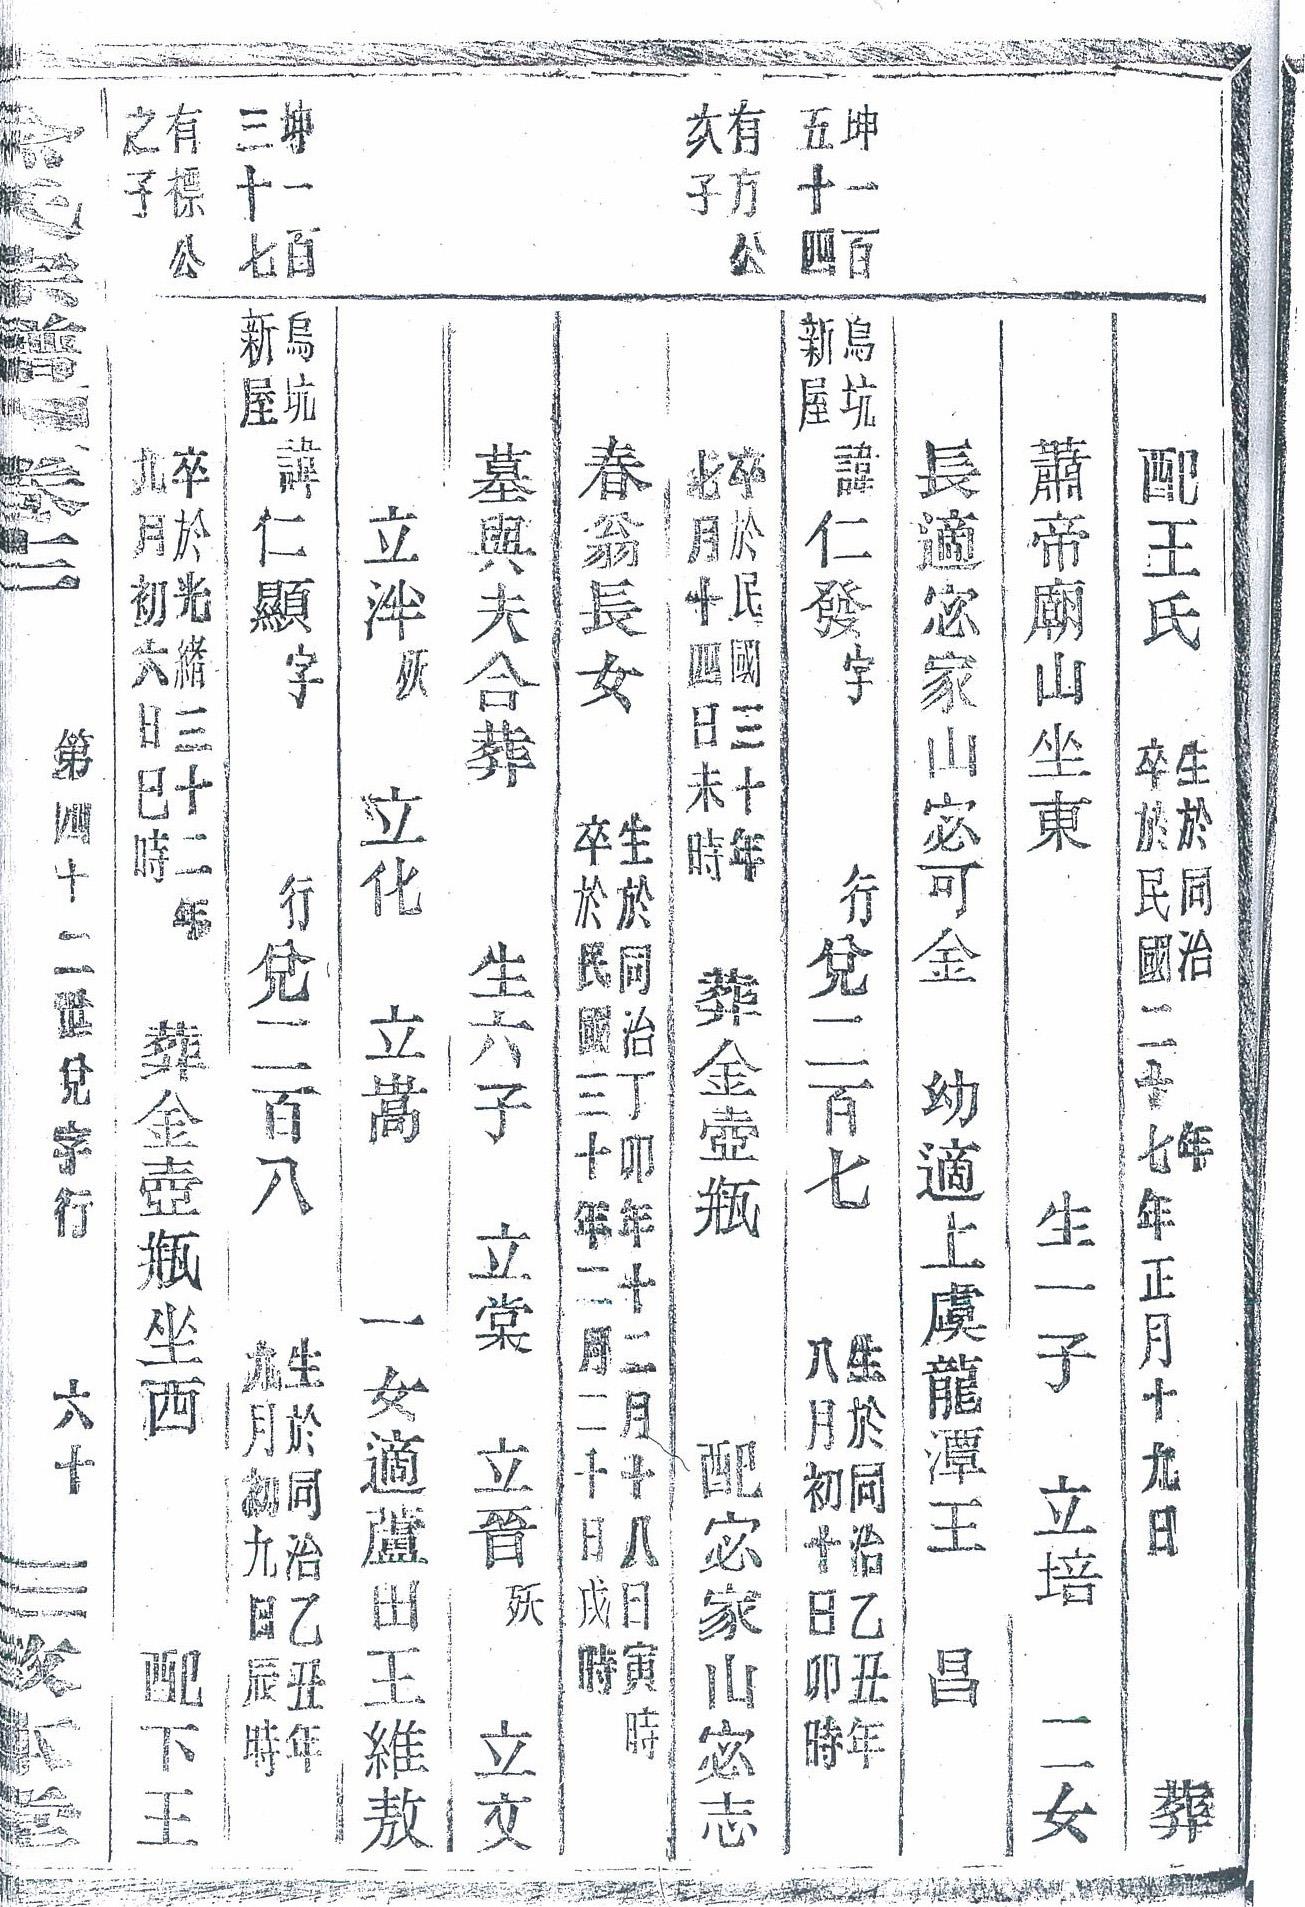 配王氏
生於同治 年
卒於民國二十七年正月十九日
葬
蕭帝廟山坐東 生一子 立培 二女
長適宓家山宓可金 幼適上虞龍潭王 昌
坤一百
五十四
烏坑
新屋
諱仁發字 行兌二百七
生於同治乙丑年
八月初十日卯時
有方公
亥子
卒於民國三十年
七月十四日未時
葬金壺瓶 配宓家山宓志
春翁長女
生於同治丁卯年十二月十八日寅時
卒於民國三十年二月二十日戌時
墓與夫合葬 生六子 立棠 立晉 殀 立文
立泮 殀 立化 立嵩 一女適蘆田王維敖
坤一百
三十七
烏坑
新屋
諱仁顯字 行兌二百八
生於同治乙丑年
九月初九日辰時
有標公
之子
卒於光緒三十二年
九月初六日巳時
葬金壺瓶坐西 配下王
宗譜 卷三 第四十二世兌字行 六十